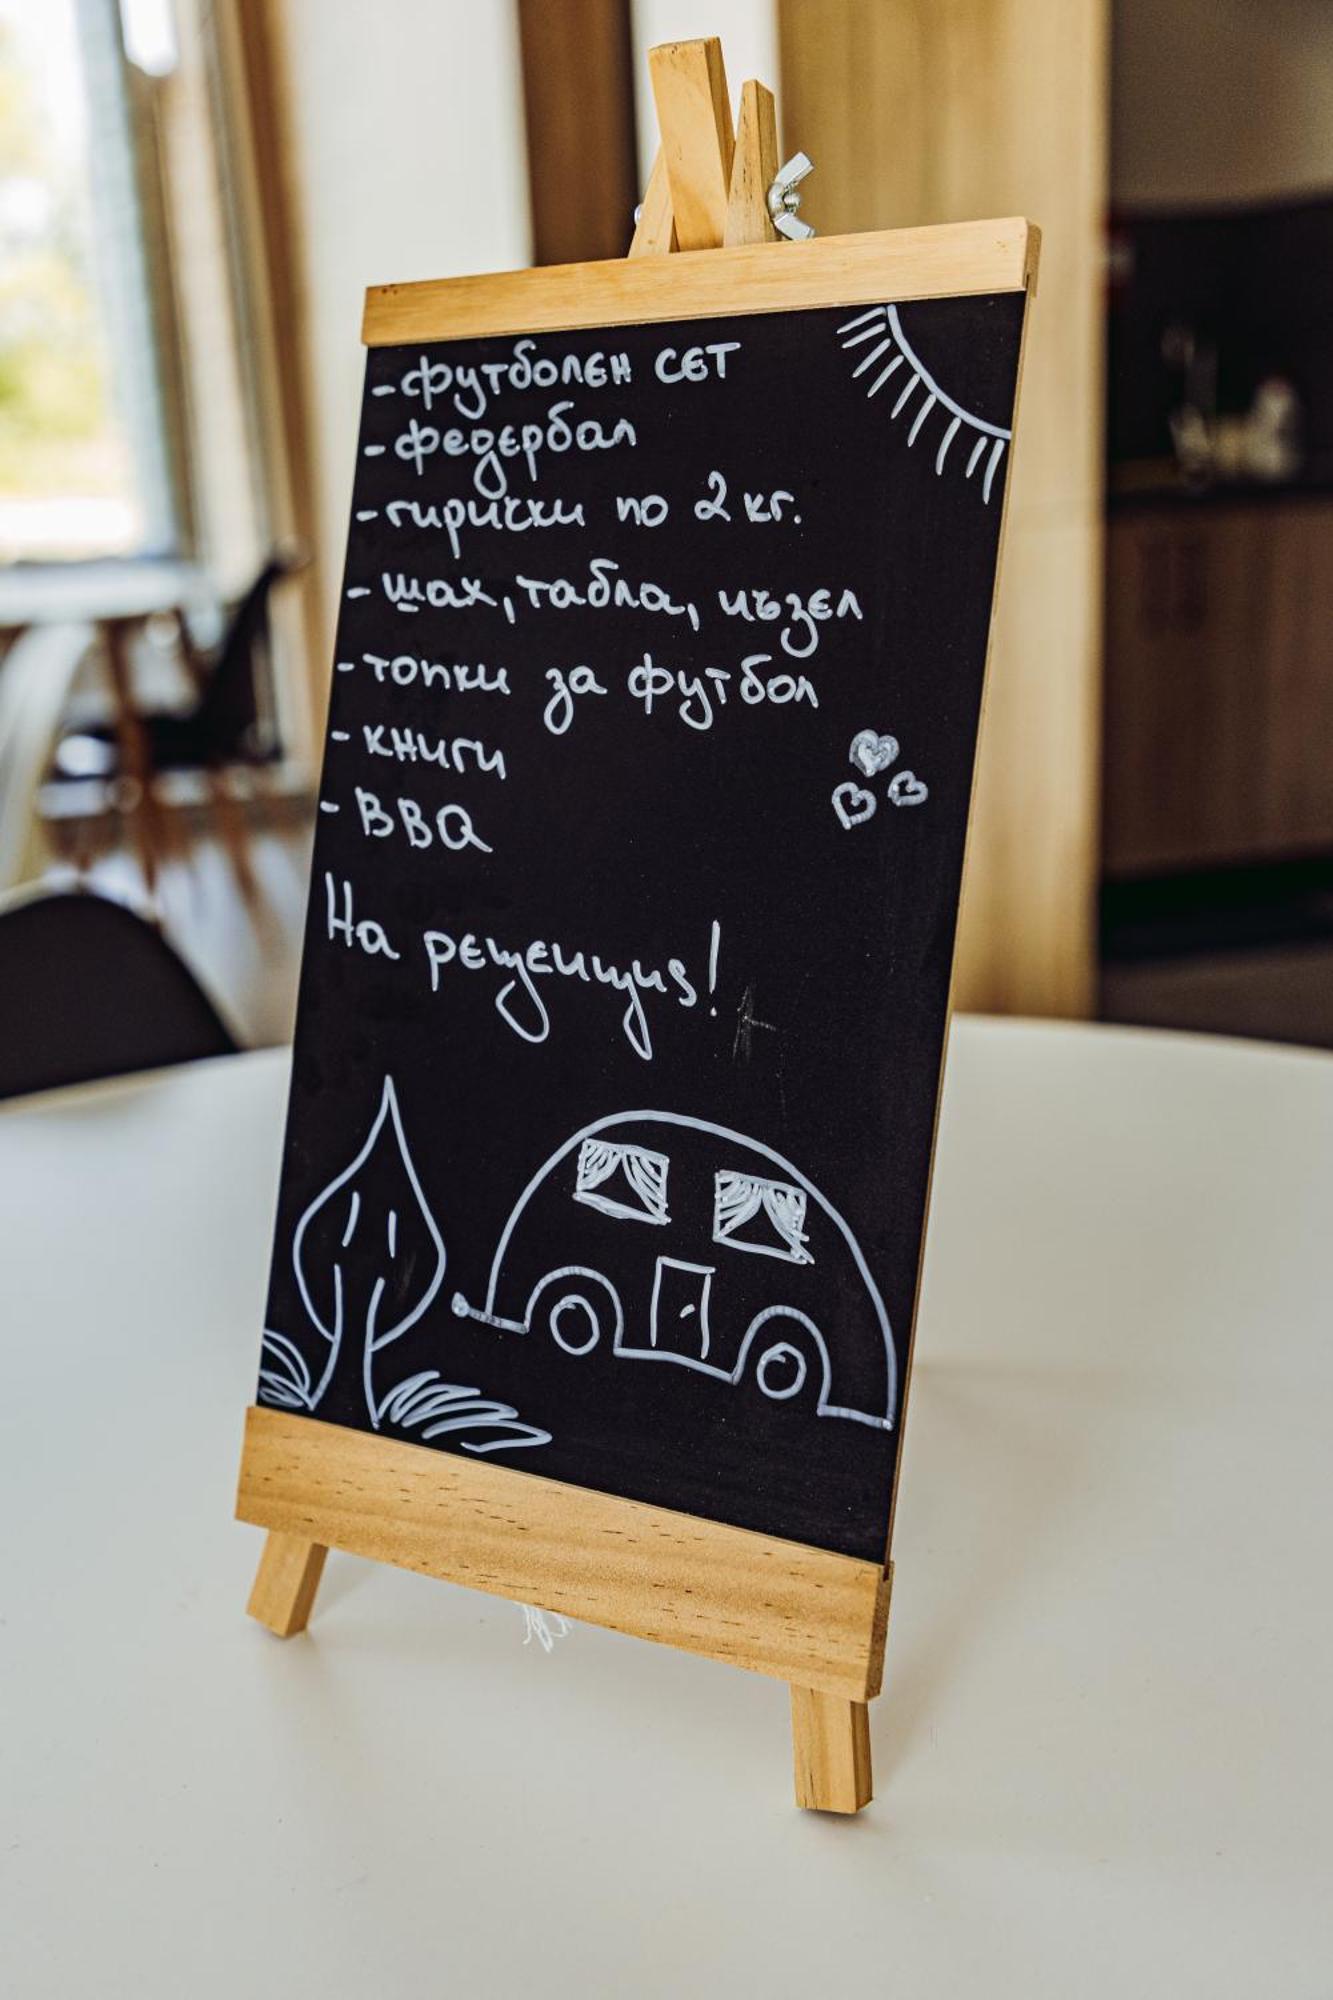 - футболен сет
- федербал
- гирички по 2 кг.
- шах, табла, пъзел
- топки за футбол
- книги
- BBQ
На рецепция!